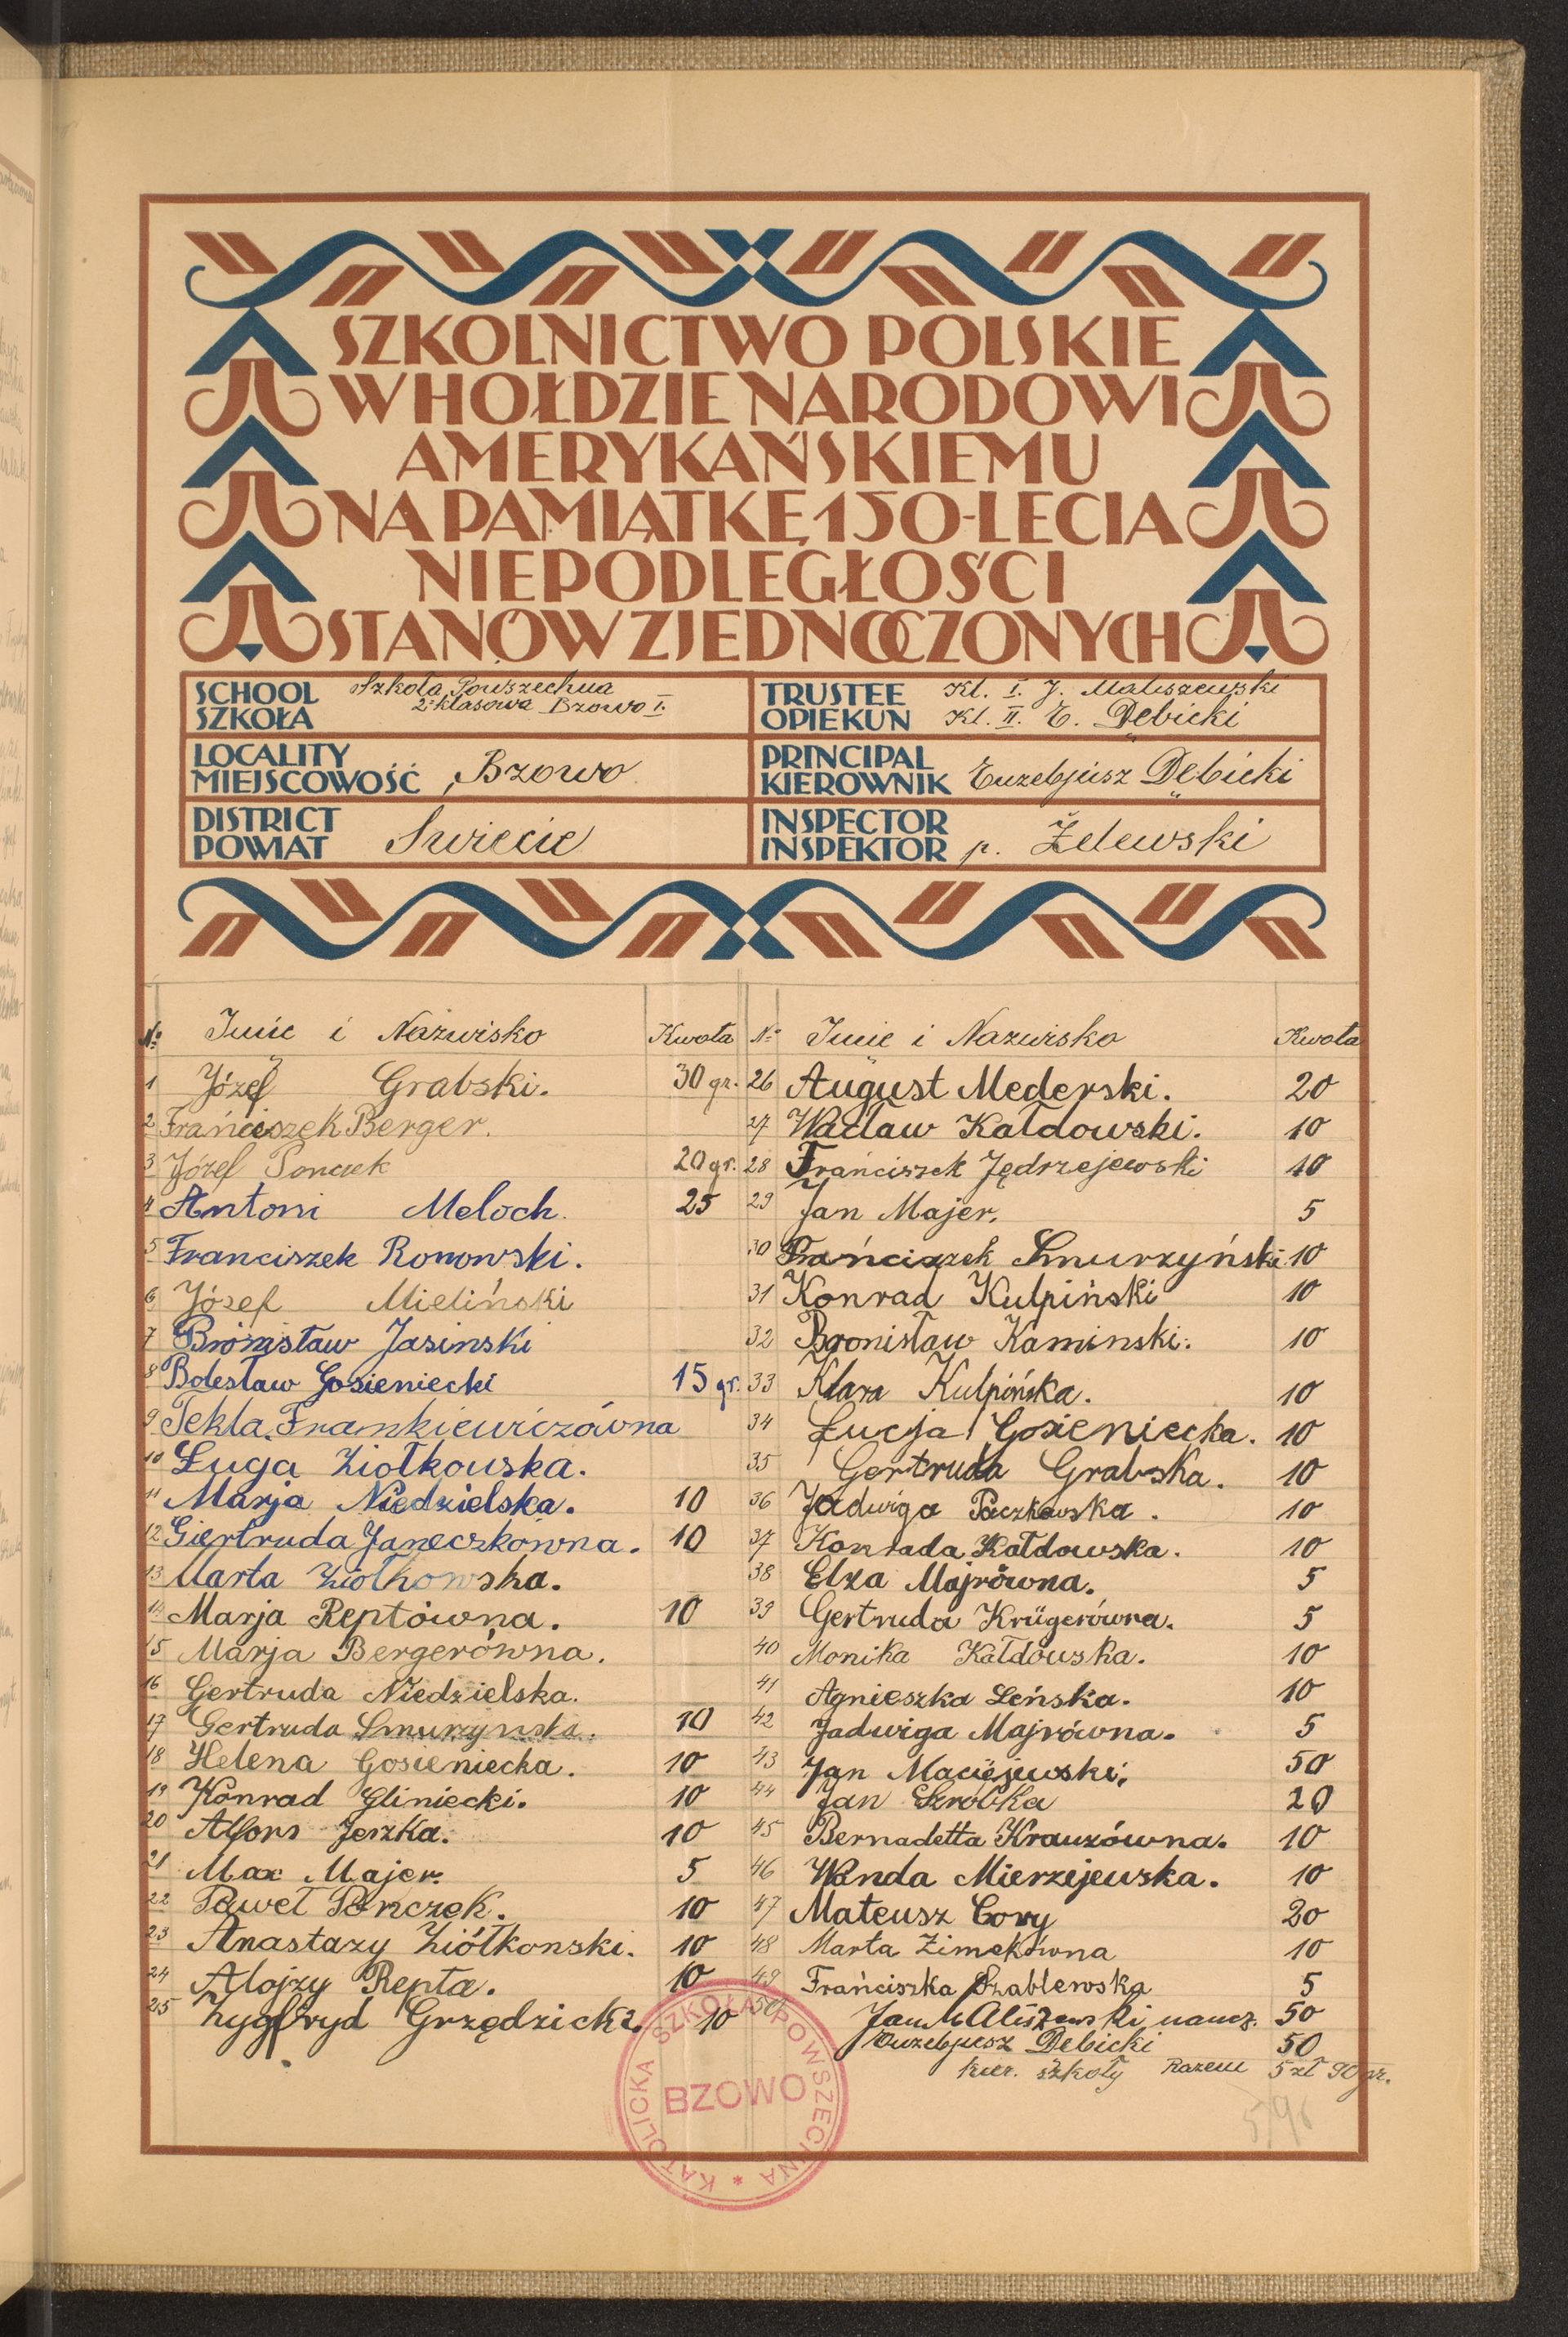 SZKOLNICTWO POLSKIE
W HOŁDZIE NARODOWI
AMERYKAŃSKIEMU
NA PAMIĄTKĘ 150-LECIA
NIEPODLEGŁOŚCI
STANÓW ZJEDNOCZONYCH
SCHOOL
SZKOŁA
Szkoła Powszechna
2-klasowa Bzowo I.
TRUSTEE
OPIEKUN
Kl. I. J. Maliszewski
Kl. II. E. Dębicki
LOCALITY
MIEJSCOWOŚĆ
Bzowo
PRINCIPAL
KIEROWNIK
Euzebjusz Dębicki
DISTRICT
POWIAT
Swiecie
INSPECTOR
INSPEKTOR
p. Żelewski
No Imię i Nazwisko Kwota
1 Józef Grabski. 30 gr.
2 Frańciszek Berger.
3 Józef Ponczek 20 gr.
4 Antoni Meloch. 25
5 Franciszek Ronowski.
6 Józef Mieliński
7 Bronisław Jasinski
8 Bolesław Gosieniecki 15 gr.
9 Tekla Frankiewiczówna
10 Ługa Ziołkowska.
11 Marja Niedzielska. 10
12 Giertruda Janeczkówna. 10
13 Marta Ziołkowska.
14 Marja Reptówna. 10
15 Marja Bergerówna.
16 Gertruda Niedzielska.
17 Gertruda Smurzynska. 10
18 Helena Gosieniecka. 10
19 Konrad Gliniecki. 10
20 Alfons Jeszka. 10
21 Max Majer. 5
22 Paweł Ponczek. 10
23 Anastazy Ziółkonski. 10
24 Alojzy Repta. 10
25 Zygfryd Grzędzicki. 10
No Imię i Nazwisko Kwota
26 August Mederski. 20
27 Wacław Kałdowski. 10
28 Frańciszek Jędrzejewski 10
29 Jan Majer. 5
30 Frańciszek Smurzyński 10
31 Konrad Kulpiński 10
32 Bronisław Kaminski. 10
33 Klara Kulpińska. 10
34 Łucja Gosieniecka. 10
35 Gertruda Grabska. 10
36 Jadwiga Paczkowska. 10
37 Konrada Kałdowska. 10
38 Elza Majrówna. 5
39 Gertruda Krügerówna. 5
40 Monika Kałdowska. 10
41 Agnieszka Leńska. 10
42 Jadwiga Majrówna. 5
43 Jan Maciejewski, 50
44 Jan Szróbka 20
45 Bernadetta Krauzówna. 10
46 Wanda Mierzejewska. 10
47 Mateusz Cory 20
48 Marta Zimekówna 10
49 Frańciszka Szablewska 5
50 Jan Maliszewski naucz. 50
Euzebjusz Dębicki 50
kier. szkoły Razem 5 zł 90 gr.
5,90
KATOLICKA SZKOŁA POWSZECHNA *
BZOWO